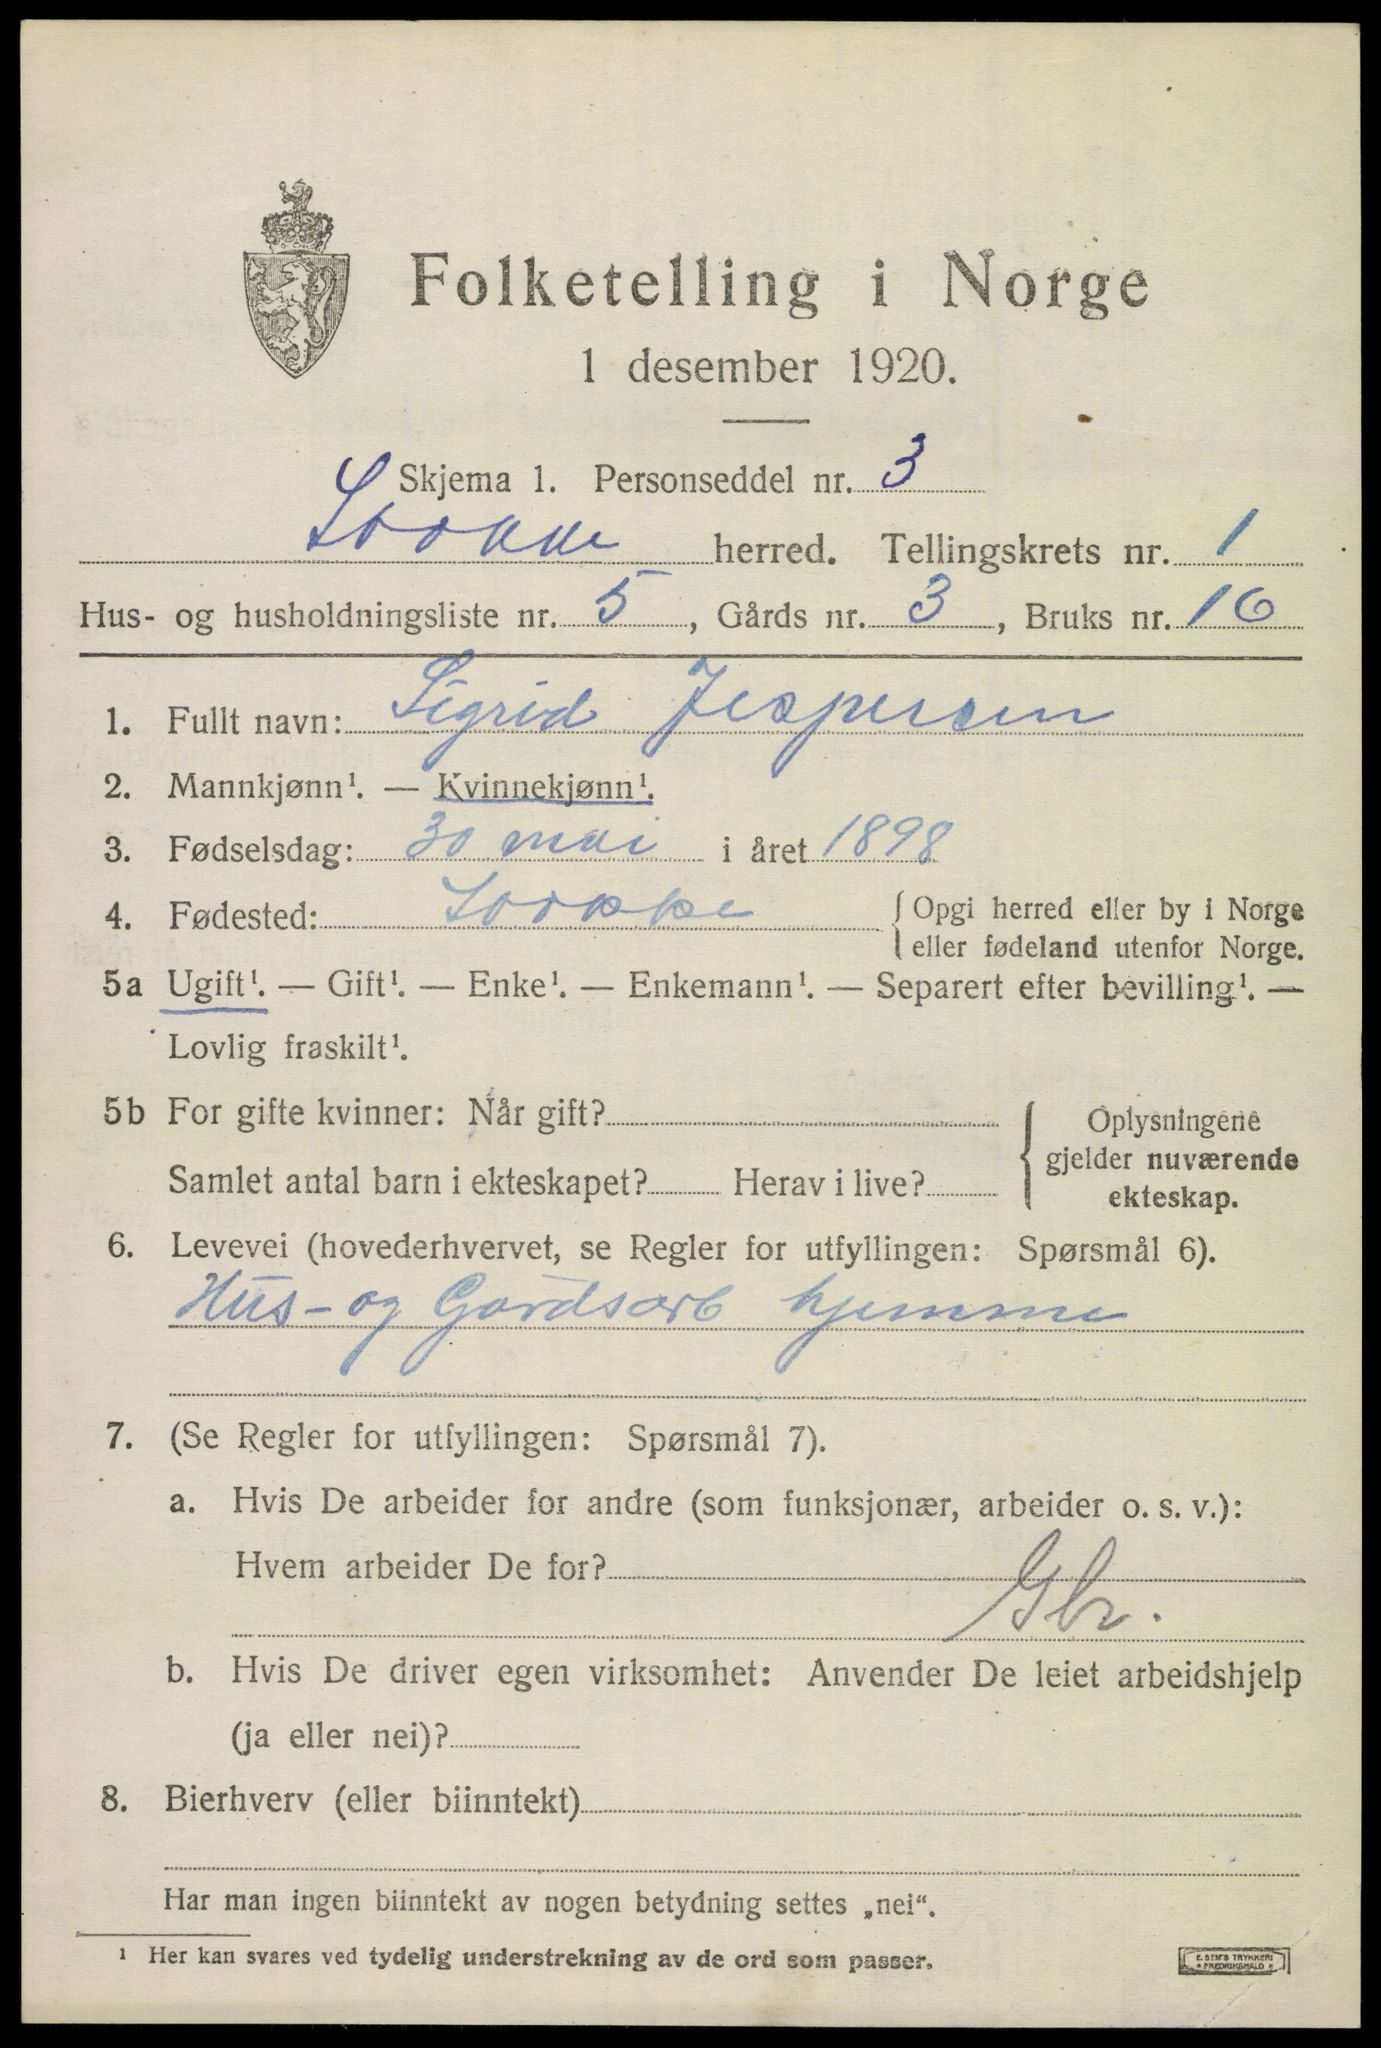 Folketelling i Norge
1 desember 1920.
Skjema 1. Personseddel nr. 3
Stokke herred. Tellingskrets nr. 1
Hus- og husholdningsliste nr. 5, Gårds nr. 3, Bruks nr. 16
1. Fullt navn: Sigrid Jespersen
2. Mannkjønn¹. — Kvinnekjønn¹.
3. Fødselsdag: 30 mai i året 1898
4. Fødested: Stokke { Opgi herred eller by i Norge
eller fødeland utenfor Norge.
5a Ugift¹. — Gift¹. — Enke¹. — Enkemann¹. — Separert efter bevilling¹. —
Lovlig fraskilt¹.
5b For gifte kvinner: Når gift?
Samlet antal barn i ekteskapet? Herav i live?
{ Oplysningene
gjelder nuværende
ekteskap.
6. Levevei (hovederhvervet, se Regler for utfyllingen: Spørsmål 6).
Hus- og Gårdsarb hjemme
7. (Se Regler for utfyllingen: Spørsmål 7).
a. Hvis De arbeider for andre (som funksjonær, arbeider o. s. v.):
Hvem arbeider De for?
Gbr.
b. Hvis De driver egen virksomhet: Anvender De leiet arbeidshjelp
(ja eller nei)?
8. Bierhverv (eller biinntekt)
Har man ingen biinntekt av nogen betydning settes „nei“.
¹ Her kan svares ved tydelig understrekning av de ord som passer.
E. SEM'S TRYKKERI
• FREDRIKSHALD •